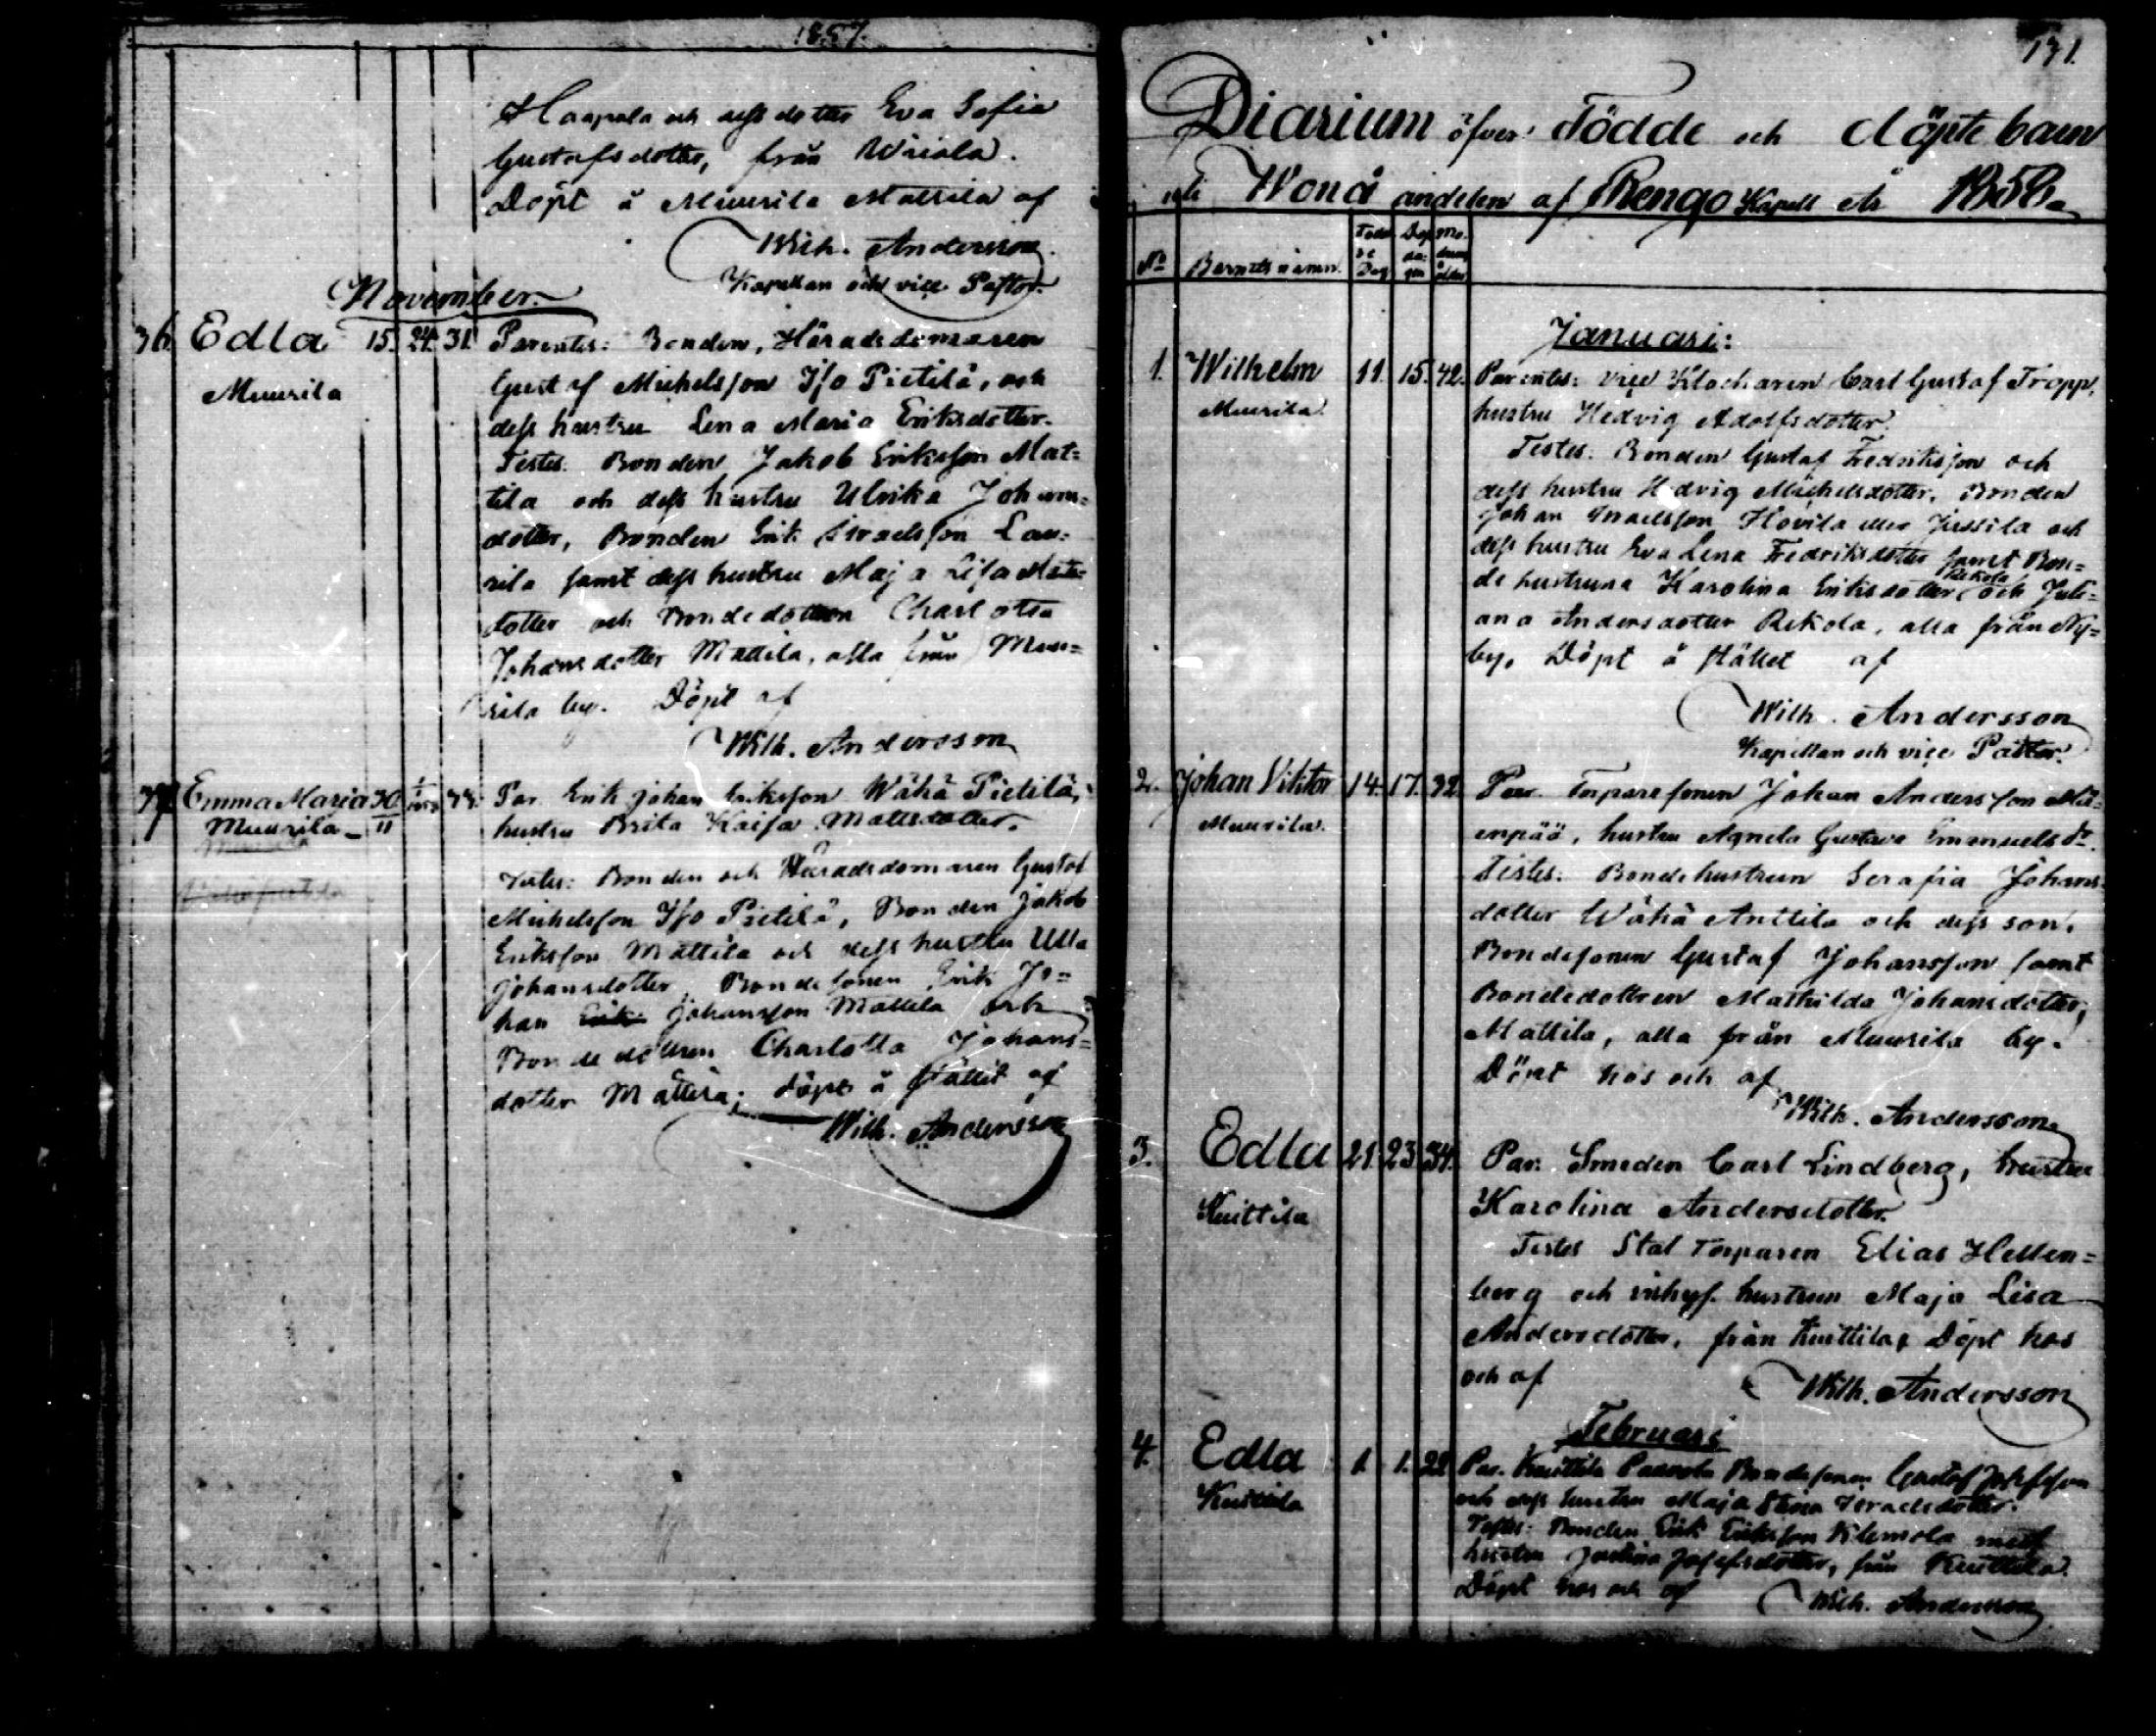 1857.
Haapala och dess dotter Eva Sofia
Gustafsdotter, från Wiiala.
Döpt å Muurila Mattila af
Wilh. Andersson
Kapellan och vice Pastor.
November.
36. Edla 15. 24. 31. Parentes: Bonden, Häradsdomaren
Muurila
Gustaf Michelsson Iso Pietilä, och
dess hustru Lena Maria Eriksdotter.
Testes: Bonden Jakob Eriksson Mat=
tila och dess hustru Ulrika Johans=
dotter, Bonden Erik Israelsson Lau=
rila samt dess hustru Maja Lisa Mats=
dotter och Bondedottren Charlotta
Johansdotter Mattila, alla från Muu=
rila by. Döpt af
Wilh. Andersson
37. Emma Maria 30/11 Par. Erik Johan Eriksson Wähä Pietilä,
Muurila
hustru Brita Kaisa Mattsdotter.
Testes: Bonden och Häradsdomaren Gustaf
Michelsson Iso Pietilä, Bonden Jakob
Eriksson Mattila och dess hustru Ulla
Johansdotter, Bondesonen Erik Jo=
han Johansson Mattila och
Bondedottren Charlotta Johans=
dotter Mattila; döpt å stället af
Wilh. Andersson
171.
Diarium öfver Födde och döpte barn
uti Wonå andelen af Rengo Kapell år 1858.
No Barnets namn. Födel se Dag Dop da: gen Mo. drens ålder
Januari:
1. Wilhelm 11. 15. 42. Parentes: vice Klockaren Carl Gustaf Tropp,
Muurila.
hustru Hedvig Adolfsdotter.
Testes: Bonden Gustaf Fredriksson och
dess hustru Hedvig Michelsdotter, Bonden
Johan Israelsson Hovila eller Jussila och
dess hustru Eva Lena Fredriksdotter samt Bon=
de hustruna Karolina Eriksdotter Rekola och Juli=
ana Andersdotter Rekola, alla från Ny=
by. Döpt å stället af
Wilh. Andersson
Kapellan och vice Pastor.
2. Johan Viktor 14. 17. 32. Par. Torparesonen Johan Andersson Mä=
Muurila.
enpää, hustru Agneta Gustava Emanuels dr.
Testes: Bondehustrun Serafia Johans=
dotter Wähä Anttila och dess son,
Bondesonen Gustaf Johansson samt
Bondedottren Mathilda Johansdotter,
Mattila, alla från Muurila by.
Döpt hos och af
Wilh. Andersson
3. Edla 21. 23. 34. Par. Smeden Carl Lindberg, hustru
Kuittila
Karolina Andersdotter.
Testes Stat Torparen Elias Hellen=
berg och inhys. hustrun Maja Lisa
Andersdotter, från Kuittila, Döpt hos
och af
Wilh. Andersson
Februari
4. Edla 1. 1. 22 Par. Kuittila Bondesonen Gustaf Josefsson
Kuittila
och dess hustru Maja Stina Israelsdotter.
Testes: Bonden Erik Eriksson Klemola med
hustru Justina Josefsdotter, från Kuittila.
Döpt hos och af
Wilh. Andersson